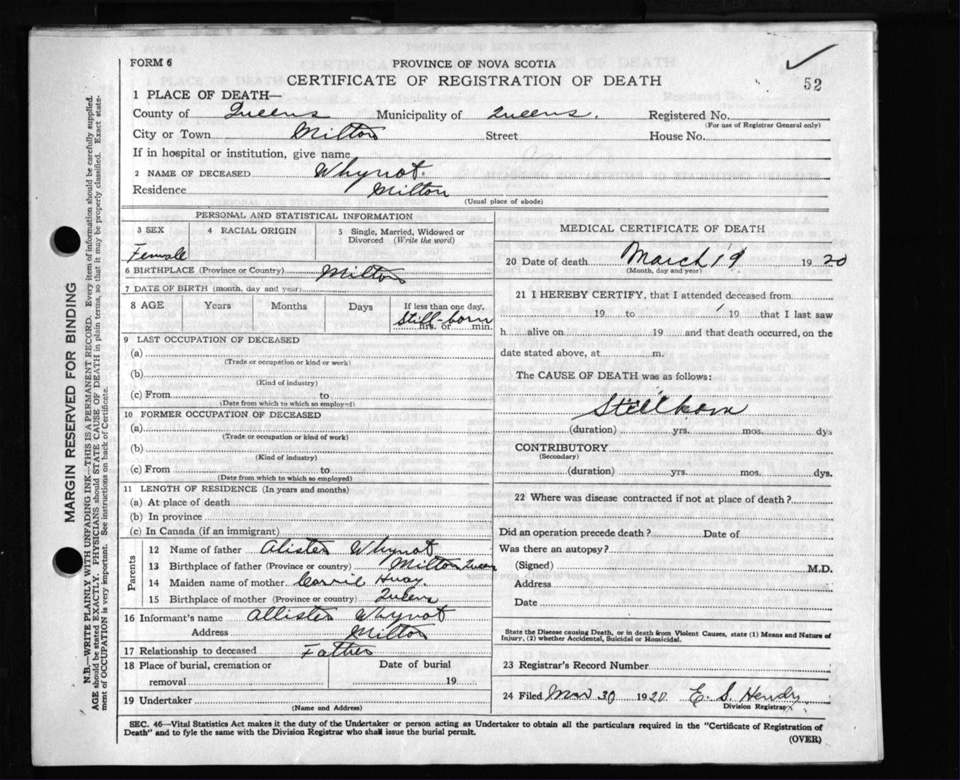 FORM 6
PROVINCE OF NOVA SCOTIA
CERTIFICATE OF REGISTRATION OF DEATH
52
1 PLACE OF DEATH—
County of Queens Municipality of Queens. Registered No.
(For use of Registrar General only)
City or Town Milton Street House No.
If in hospital or institution, give name
2 NAME OF DECEASED Whynot.
Residence Milton
(Usual place of abode)
PERSONAL AND STATISTICAL INFORMATION
3 SEX 4 RACIAL ORIGIN 5 Single, Married, Widowed or Divorced (Write the word)
Female
6 BIRTHPLACE (Province or Country) Milton
7 DATE OF BIRTH (month, day and year)
8 AGE Years Months Days If less than one day,
Still-born
hrs. or min.
9 LAST OCCUPATION OF DECEASED
(a)
(Trade or occupation or kind or work)
(b)
(Kind of industry)
(c) From to
(Date from which to which so employed)
10 FORMER OCCUPATION OF DECEASED
(a)
(Trade or occupation or kind of work)
(b)
(Kind of industry)
(c) From to
(Date from which to which so employed)
11 LENGTH OF RESIDENCE (In years and months)
(a) At place of death
(b) In province
(c) In Canada (if an immigrant)
Parents
12 Name of father Alister Whynot
13 Birthplace of father (Province or country) Milton Queens
14 Maiden name of mother Carrie
15 Birthplace of mother (Province or country) Queens
16 Informant's name Allister Whynot
Address Milton
17 Relationship to deceased Father
18 Place of burial, cremation or Date of burial
removal 19
19 Undertaker
(Name and Address)
MEDICAL CERTIFICATE OF DEATH
20 Date of death March 19 1920
(Month, day and year)
21 I HEREBY CERTIFY, that I attended deceased from
19 to 19 that I last saw
h alive on 19 and that death occurred, on the
date stated above, at m.
The CAUSE OF DEATH was as follows:
Stillborn
(duration) yrs. mos. dys
CONTRIBUTORY
(Secondary)
(duration) yrs. mos. dys.
22 Where was disease contracted if not at place of death?
Did an operation precede death? Date of
Was there an autopsy?
(Signed) M.D.
Address
Date
State the Disease causing Death, or in death from Violent Causes, state (1) Means and Nature of
Injury, (2) whether Accidental, Suicidal or Homicidal.
23 Registrar's Record Number
24 Filed Mar 30 1920 E. S. Hendry
Division Registrar
SEC. 46—Vital Statistics Act makes it the duty of the Undertaker or person acting as Undertaker to obtain all the particulars required in the "Certificate of Registration of
Death" and to fyle the same with the Division Registrar who shall issue the burial permit.
(OVER)
MARGIN RESERVED FOR BINDING
N.B.—WRITE PLAINLY WITH UNFADING INK—THIS IS A PERMANENT RECORD. Every item of information should be carefully supplied.
AGE should be stated EXACTLY. PHYSICIANS should STATE CAUSE OF DEATH in plain terms, so that it may be properly classified. Exact state-
ment of OCCUPATION is very important. See instructions on back of Certificate.